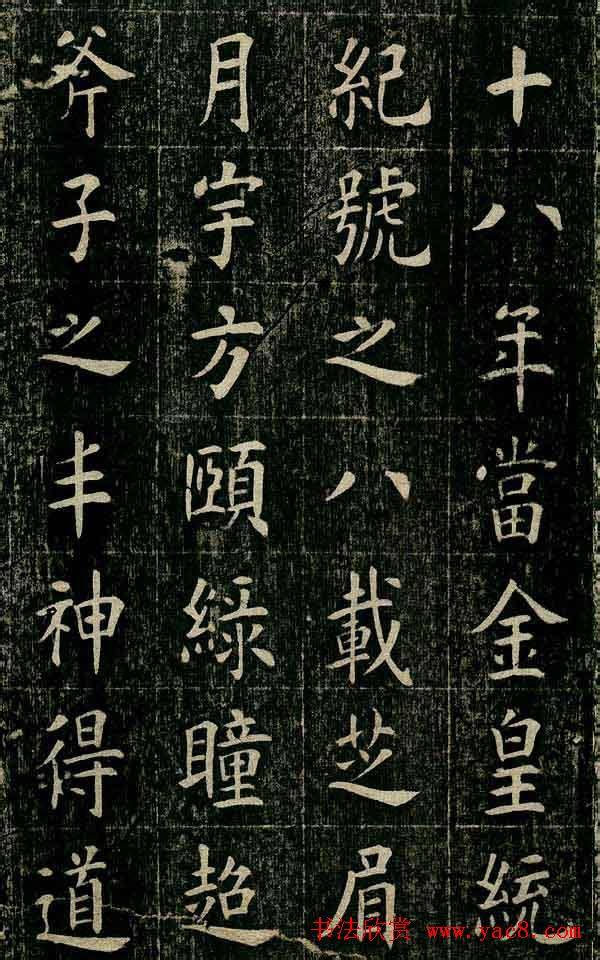 十八年當金皇統
紀號之八載芝眉
月宇方頤綠瞳超
斧子之丰神得道
书法欣赏 www.yac8.com